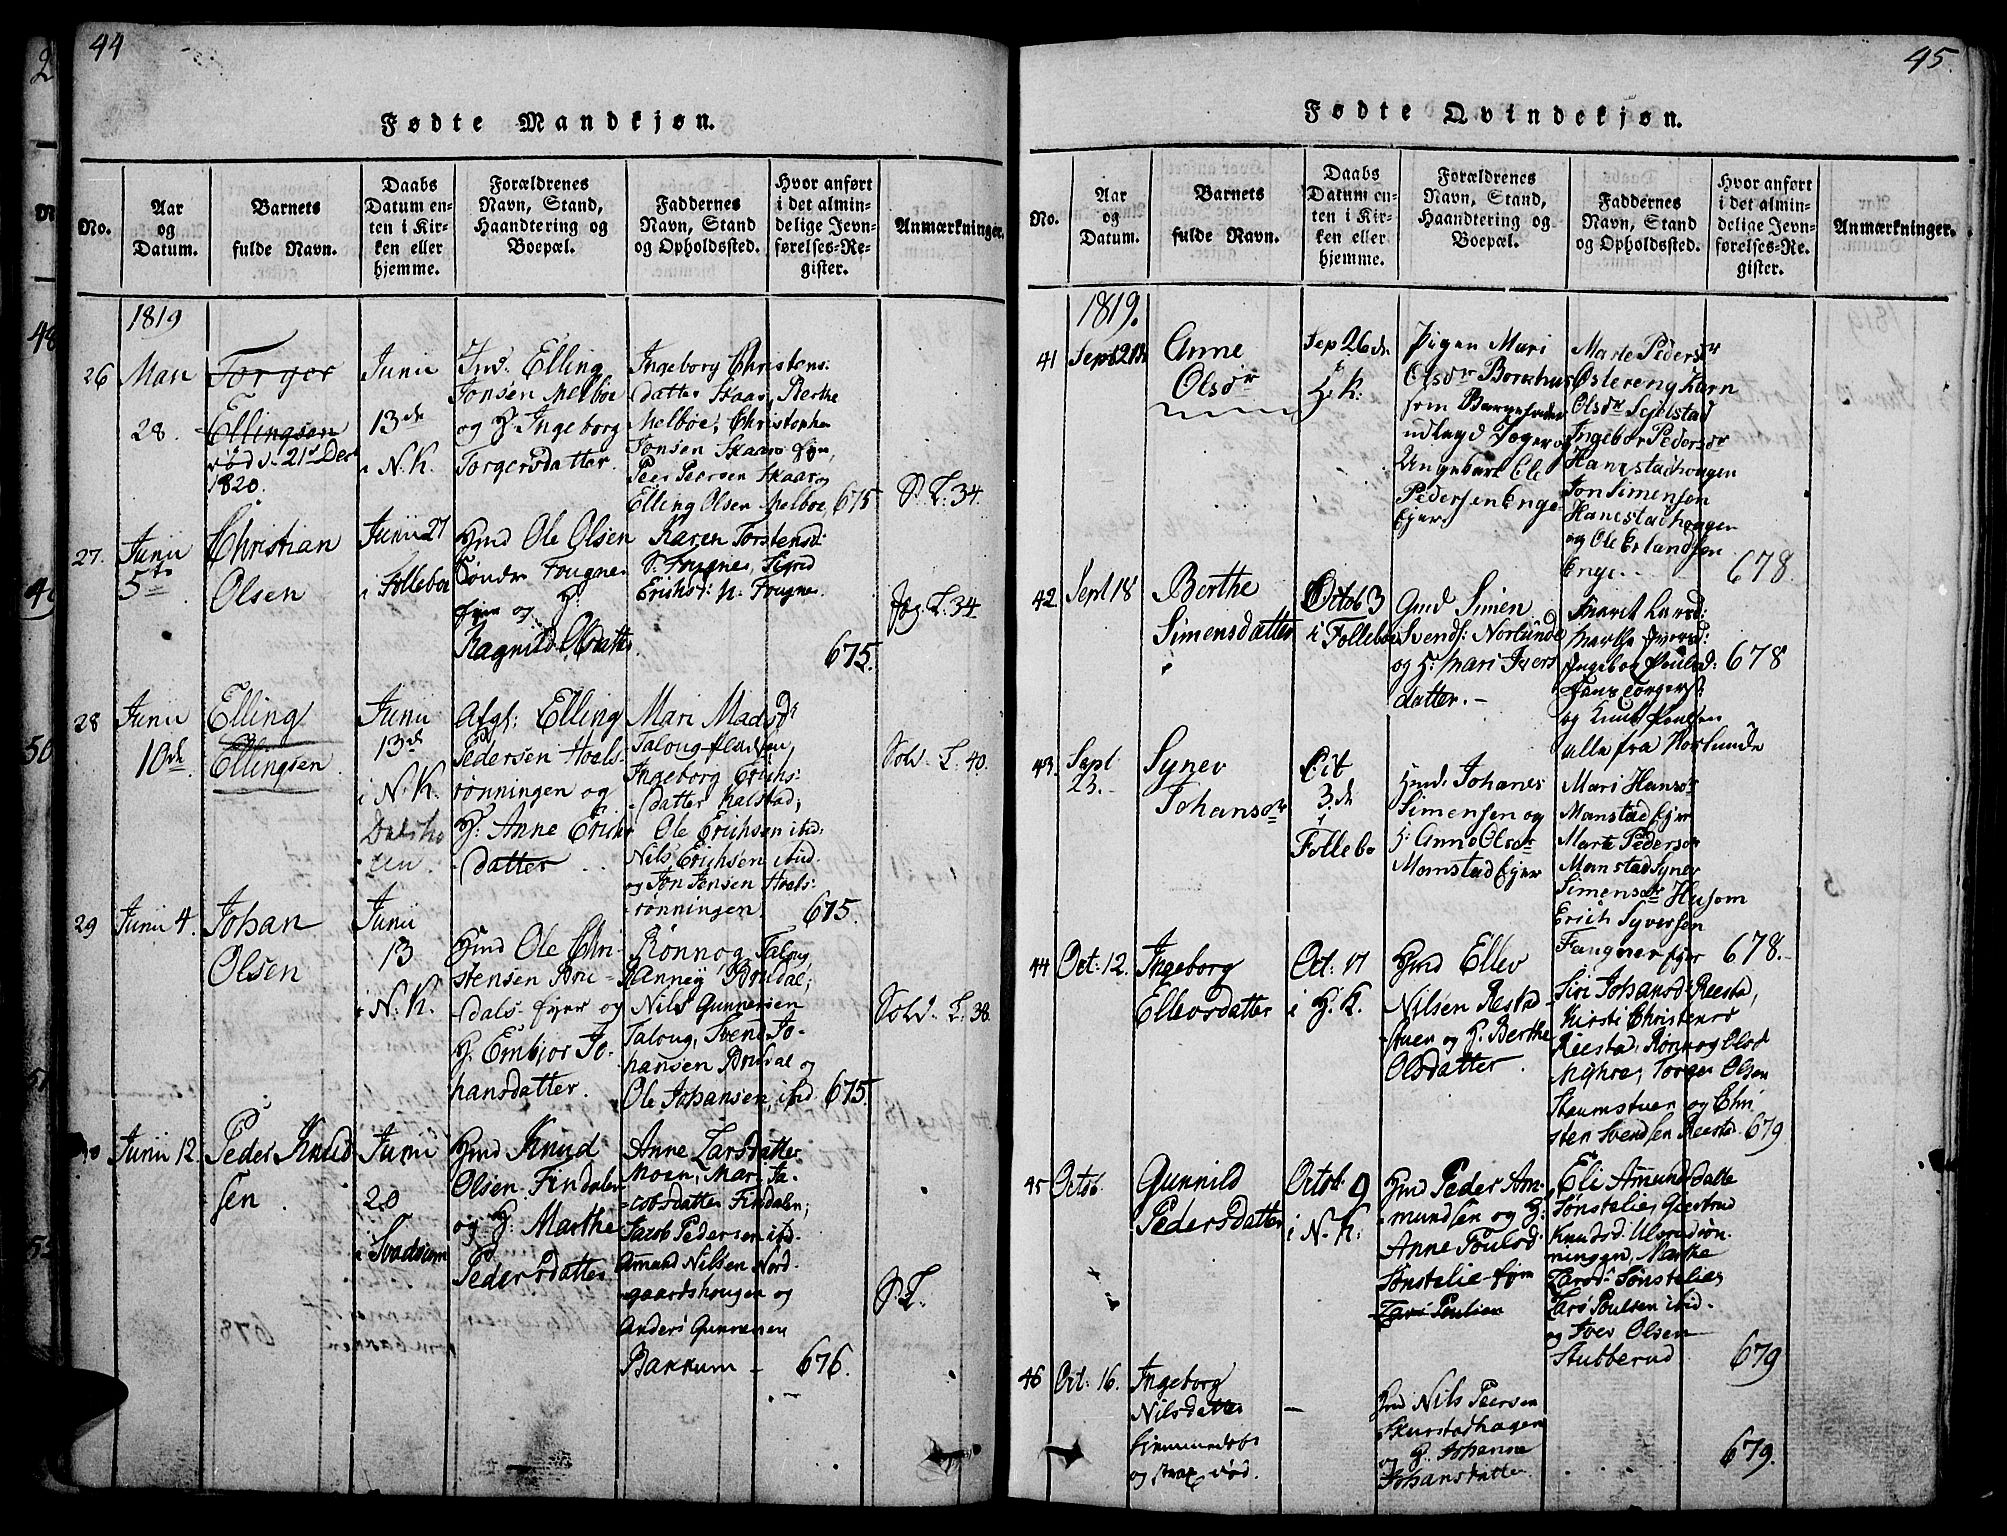 44
Fødte Mandkjøn.
No.
Aar
og
Datum.
Barnets
fulde Navn.
Daabs
Datum en-
ten i Kir-
ken eller
hjemme.
Forældrenes
Navn, Stand,
Haandtering og
Boepæl.
Faddernes
Navn, Stand
og Opholdssted.
Hvor anført
i det almin-
delige Jevn-
førelses-Re-
gister.
Anmærkninger.
1819
26
Mai
28.
Torger
Ellingsen
død d. 21 Dec
1820.
Junii
13de
i N. K.
Elling
Jonsen Melbøe
og H. Ingeborg
Torgersdatter.
Ingeborg Christens:
datter Skaar, Berthe
Melbøe, Christopher
Jonsen Skaar
Peer Peersen Skaar og
Elling Olsen Melbøe
675
S. L: 34.
27.
Junii
5te
Christian
Olsen
Junii 27
i Follebo
Hmd Ole Olsen
Søndre Fougner
og H:
Ragnild Olsdatter
Karen Torstensd:
S. Fougner, Sigrid
Erichsd: N. Fougner
675.
Jæg. L: 34
28
Junii
10de
Elling
Ellingsen
Junii
13de
i N. K.
Afgf: Elling
Pedersen Hoels-
rønningen og
H: Anne Erichs
datter
Mari Madsdr
Taloug
Ingeborg Erichs:
datter Kalstad,
Ole Erichsen ibid:
Nils Erichsen ibid.
og Jon Jonsen Hoels:
rønningen.
675.
Sold. L. 40.
29
Junii 4.
Johan
Olsen
Junii
13
i N. K.
Hmd Ole Chri-
stensen Bru-
dals- ejer og
H. Embjør Jo-
hansdatter.
Rønnog Taloug,
Ranney Brudal,
Nils Gunnersen
Taloug, Svend Jo-
hansen Brudal og
Ole Johansen, ibid
675.
Sold. L. 38.
Junii 12.
Peder Knud
sen
Junii
20
i Svadsum
Hmd Knud
Olsen Findalen
og H: Marthe
Pedersdatter
Anne Larsdatter
Moen, Mari Ja-
cobsdatter Findalen,
Jacob Pedersen ibd.
Amund Nilsen Nord-
gaardshougen og
Anders Gunnersen
Bakkum
676.
S. L.
45.
Fødte Qvindekjøn.
No.
Aar
og
Datum.
Barnets
fulde Navn.
Daabs
Datum en-
ten i Kir-
ken eller
hjemme.
Forældrenes
Navn, Stand,
Haandtering og
Boepæl.
Faddernes
Navn, Stand
og Opholdssted.
Hvor anført
i det almin-
delige Jevn-
førelses-Re-
gister.
Anmærkninger.
1819.
41
Anne
Olsdr
Sep 26de
H. K.
Pigen Mari
Olsdr
som Barnefader
udlagd
Ungekarl Ole
Pedersen Enge
Ejer
Marte Pedersdr
Østereng Karn
Olsdr
Ingebor Pedersdr
Hanestadhougen
Jon Simensen
Hanestadhougen
og Ole Erlandsen
Enge
678.
42
Sept 18
Berthe
Simensdatter
Octob 3
i Follebo
Gmd Simen
Svends: Norlunde
og H: Mari Ivers
datter.
Maret Larsd:
Marthe Iversd:
Ingebor Poulsd:
Torgers:
og Knut Poulsen
alle fra Norlunde
678
43.
Sept
23.
Synev
Johansdr
Oct
3de
i
Follebo
Hmd. Johanes
Simensen og
H: Anne Olsdr
Momstad Ejer
Mari Hansdr
Momstad Ejer
Marte Pedersdr
Momstad Synev
Simensdr Husom
Erich Syversen
ejer
678.
44
Oct: 12.
Ingeborg
Ellevsdatter
Oct: 17
i H. K.
Hmd Ellev
Nilsen Reesta
stuen og H. Berthe
Olsdatter.
Siri Johansd: Reesta,
Kirsti Christensd
Reesta, Rønnog Olsd
Myhre, Torger Olsen
Staumstuen og Chri
sten Svendsen Reesta
679
45
Octob
Gunnild
Pedersdatter
Octob. 9
i N. K.
Hmd Peder Am-
mundsen og H:
Anne Poulsd:
Sønstelie
Lars Poulsen
Eli Amundsdatter
Sønstelie, Giertrud
Knudsd.
ningen, Marthe
Larsdr Sønstelie,
Lars Poulsen ibid.
og Iver Olsen
Stubberud
679
46
Oct: 16.
Ingeborg
Nilsdatter
hjemmedøbt
og strax død.
Hmd Nils Peersen
Skurstadhagen
og H. Johanne
Johansdatter
679.